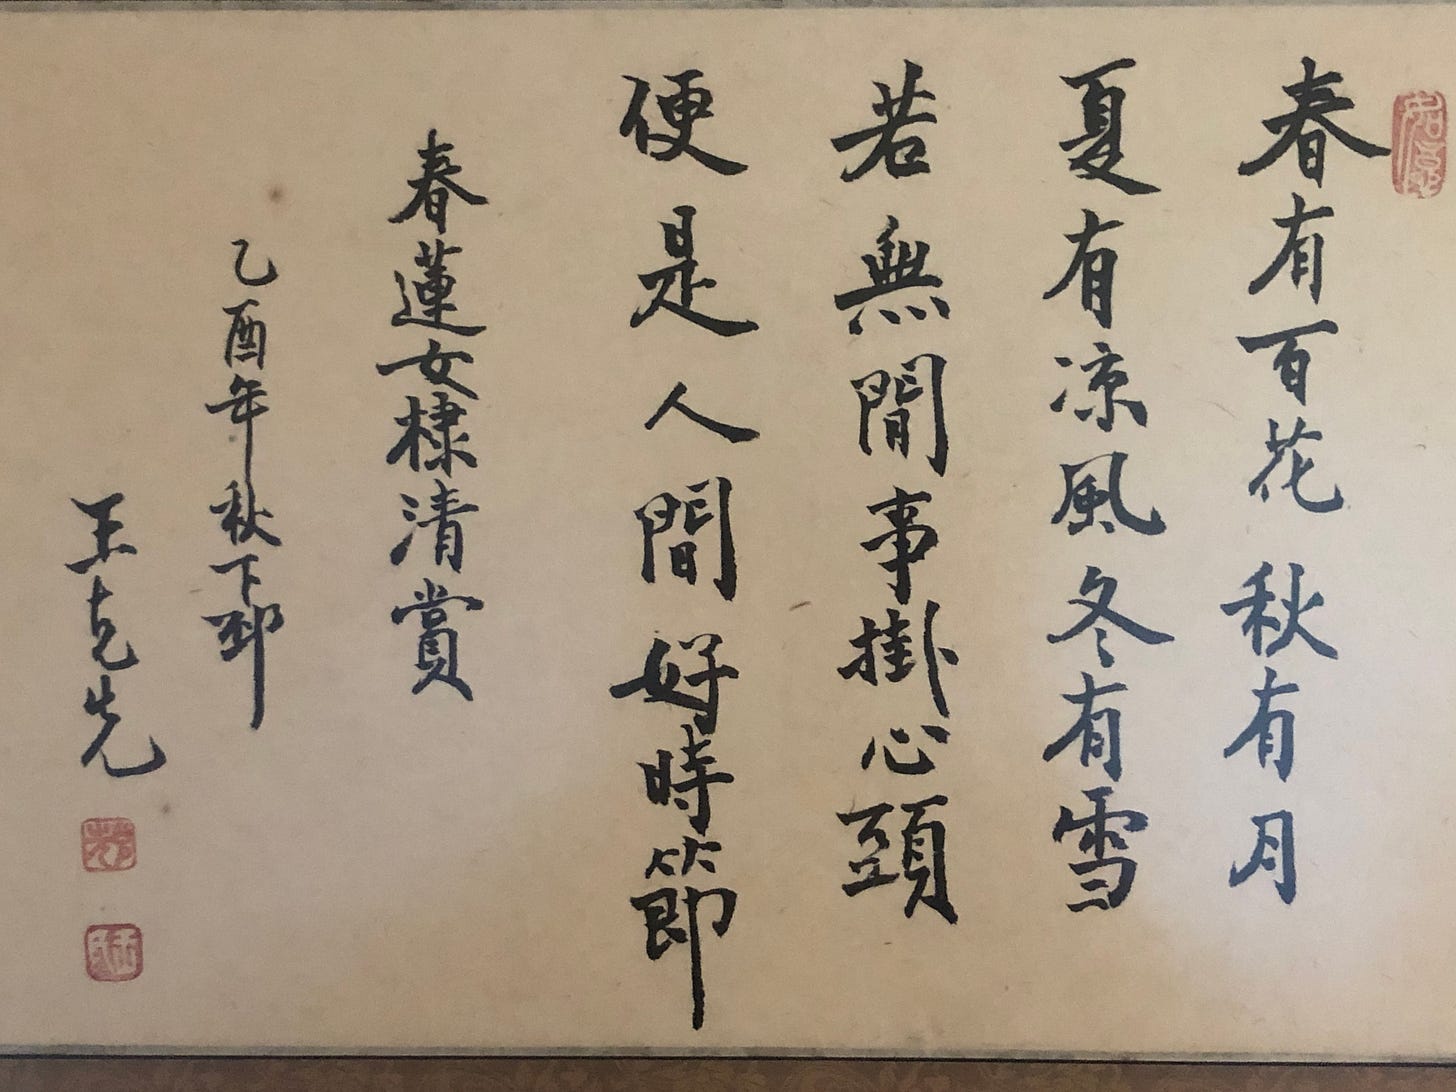 春有百花秋有月
夏有凉風冬有雪
若無閒事掛心頭
便是人間好時節
春蓮女棣清賞
乙酉年秋下邳
王克先